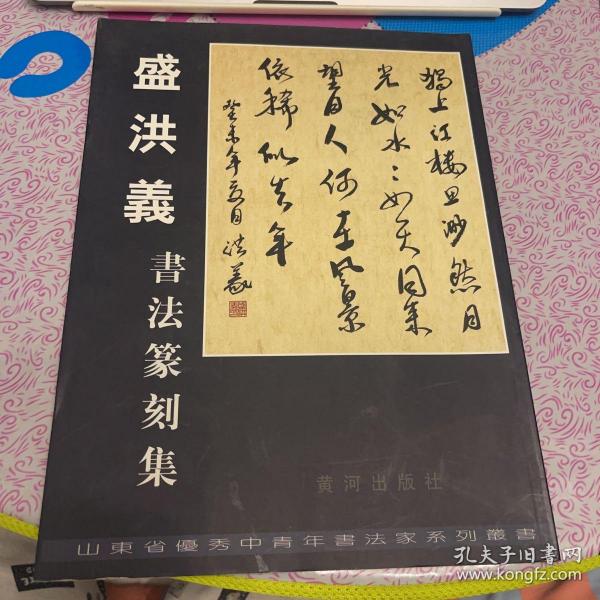 盛洪義
書法篆刻集
獨上江樓思渺然月
光如水々如天同來
望月人何在風景
依稀似去年
癸未年夏月洪義
黄河出版社
山東省優秀中青年書法家系列叢書
孔夫子旧书网
www.kongfz.com